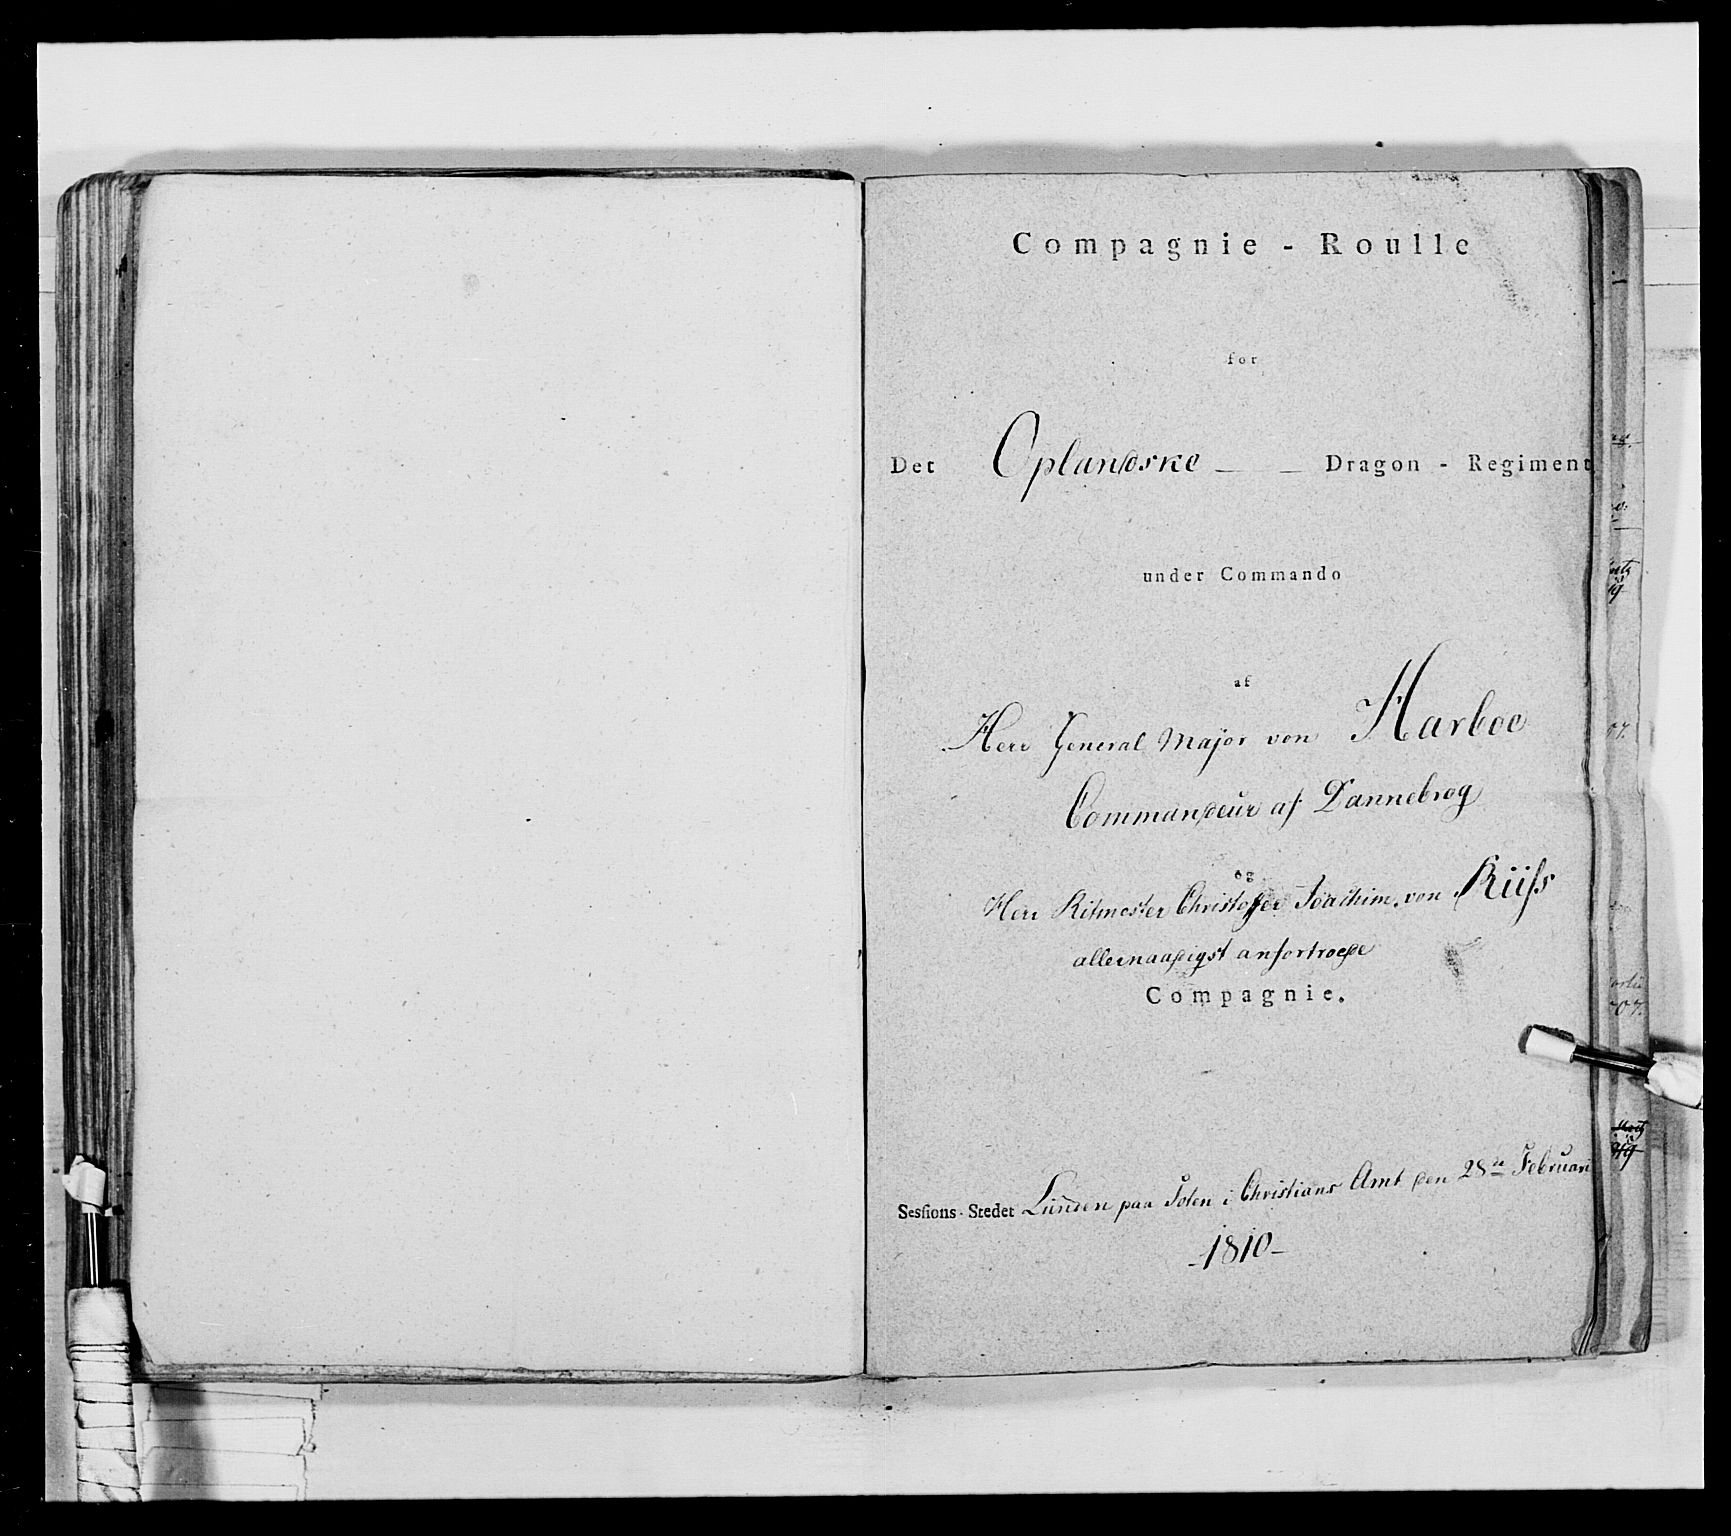 Compagnie - Roulle
for
Det Oplandske Dragon - Regiment
under Commando
af
Herr General Major von Harboe
Commandeur af Dannebrog
og
Herr Ritmester Christoffer Joachim von Rüss
allernaadigst anfortroede
Compagnie.
Sessions-Stedet Lunden paa Toten i Christians Amt den 28de Februari
-1810-